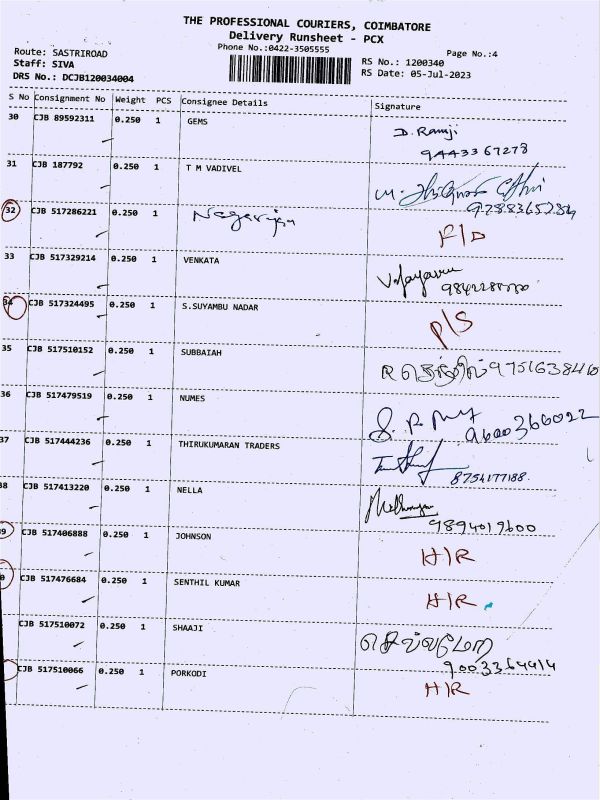 THE PROFESSIONAL COURIERS, COIMBATORE
Delivery Runsheet - PCX
Phone No.:0422-3505555
Page No.:4
Route: SASTRIROAD
Staff: SIVA
DRS No.: DCJB120034004
RS No.: 1200340
RS Date: 05-Jul-2023
S No Consignment No Weight PCS Consignee Details Signature
30 CJB 89592311 0.250 1 GEMS D. Ramji
9443367278
31 CJB 187792 0.250 1 T M VADIVEL
9788365284
32 CJB 517286221 0.250 1 Nagarajan F/D
33 CJB 517329214 0.250 1 VENKATA
34 CJB 517324495 0.250 1 S.SUYAMBU NADAR P/S
35 CJB 517510152 0.250 1 SUBBAIAH
36 CJB 517479519 0.250 1 NUMES
9600366022
37 CJB 517444236 0.250 1 THIRUKUMARAN TRADERS
8754177188
38 CJB 517413220 0.250 1 NELLA
9894019600
39 CJB 517406888 0.250 1 JOHNSON H/R
0 CJB 517476684 0.250 1 SENTHIL KUMAR H/R
CJB 517510072 0.250 1 SHAAJI
9003364914
CJB 517510066 0.250 1 PORKODI H/R